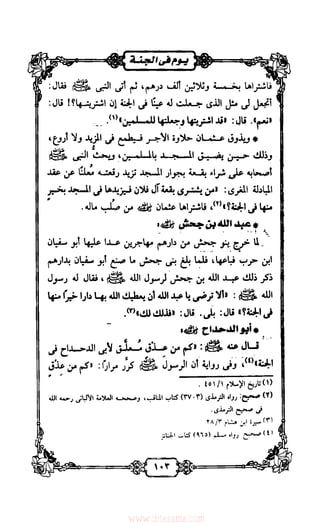 يوم في الجنة
فاشتراها بخمسة وثلاثين ألف درهم، ثم أتى النبي ﷺ فقال:
أتجعل لي مثل الذي جعلت له عينًا في الجنة إن اشتريتها؟! قال:
«نعم». قال: قد اشتريتها وجعلتها للمسلمين»(١).
* ويذوق عثمان حلاوة الأجر فيطمع في المزيد ولا يرتوي،
وذلك حين يضيق المسجد بالمسلمين، ويحث النبي ﷺ
أصحابه على شراء بقعة بجوار المسجد تزيد رقعته مُعلنًا عن عقد
المبادلة المغري: «من يشتري بقعة آل فلان فيزيدها في المسجد بخير
منها في الجنة؟»(٢)، فاشتراها عثمان ﷺ من صُلب ماله.
* عبد الله بن جحش ﷺ:
لما خرج بنو جحش من دارهم مهاجرين عدا عليها أبو سفيان
ابن حرب فباعها، فلما بلغ بني جحش ما صنع أبو سفيان بدارهم
ذكر ذلك عبد الله بن جحش لرسول الله ﷺ ، فقال له رسول
الله ﷺ : «ألا ترضى يا عبد الله أن يعطيك الله بها دارا خيرًا منها
في الجنة؟» قال: بلى. قال: «فذلك لك»(٣).
* أبو الدحداح ﷺ:
قال عنه ﷺ: «كم من عذق مُعلَّق لأبي الدحداح في
الجنة»(٤)، وفي رواية أن الرسول ﷺ كرَّر مرارًا: «كم من عذق
(١) تاريخ الإسلام ١/ ٤٥١ .
(٢) صحيح: رواه الترمذي (٣٧٠٣) كتاب المناقب، وصححه العلامة الألباني رحمه الله
في صحيح الترمذي.
(٣) سيرة ابن هشام ٣/ ٢٨
(٤) صحيح رواه مسلم (٩٦٥) كتاب الجنائز
١٠٣